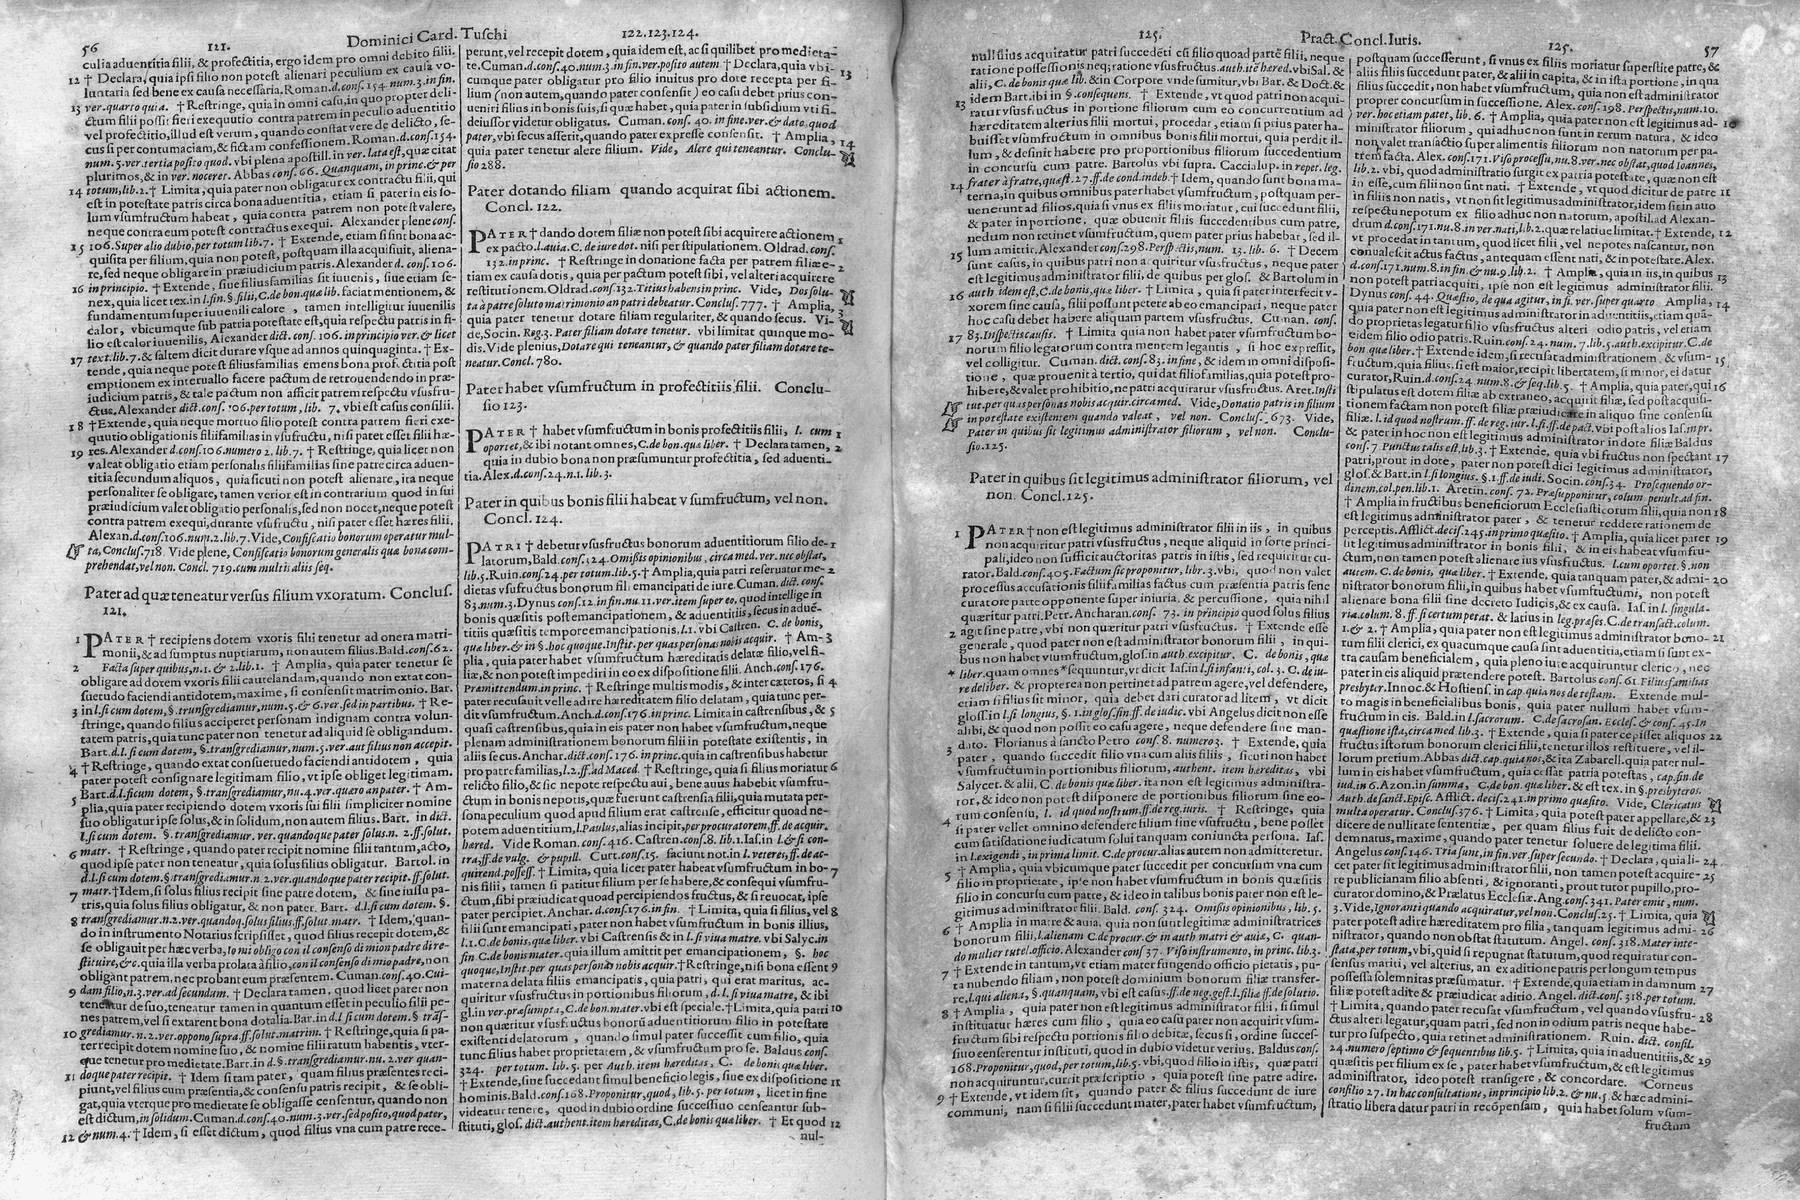 56 121. Dominici Card. Tuschi 122.123.124.
culia aduentitia filii, & profectitia, ergo idem pro omni debito filii.
12 † Declara, quia ipsi filio non potest alienari peculium ex causa vo-
luntaria sed bene ex causa necessaria. Roman. d. cons. 154 num. 3. in fin.
13 ver. quarto quia. † Restringe, quia in omni casu, in quo propter deli-
ctum filii possit fieri exequutio contra patrem in peculio aduentitio
vel profectitio, illud est verum, quando constat vere de delicto, se-
cus si per contumaciam, & fictam confessionem. Roman. d. cons. 154.
num. 5. ver. tertia posito quod. vbi plena apostill. in ver. lata est, quæ citat
plurimos, & in ver. nocerer. Abbas cons. 66. Quanquam, in princ. & per
14 totum, lib. 2. † Limita, quia pater non obligatur ex contractu filii, qui
est in potestate patris circa bona aduentitia, etiam si pater in eis so-
lum vsumfructum habeat, quia contra patrem non potest valere,
neque contra eum potest contractus exequi. Alexander plene cons.
15 106. Super alio dubio, per totum lib. 7. † Extende, etiam si sint bona ac-
quisita per filium, quia non potest, postquam illa acquisiuit, aliena-
re, sed neque obligare in præiudicium patris. Alexander d. cons. 106.
16 in principio. † Extende, siue filiusfamilias sit iuuenis, siue etiam se-
nex, quia licet tex. in l. fin. §. filii, C. de bon. quæ lib. faciat mentionem, &
fundamentum super iuuenili calore, tamen intelligitur iuuenilis
calor, vbicumque sub patria potestate est, quia respectu patris in fi-
lio est calor iuuenilis, Alexander dict. cons. 106. in principio ver. & licet
17 text. lib. 7. & saltem dicit durare vsque ad annos quinquaginta. † Ex-
tende, quia neque potest filiusfamilias emens bona profectitia post
emptionem ex interuallo facere pactum de retrouendendo in præ-
iudicium patris, & tale pactum non afficit patrem respectu vsusfru-
ctus. Alexander dict. cons. 106. per totum, lib. 7. vbi est casus consilii.
18 † Extende, quia neque mortuo filio potest contra patrem fieri exe-
quutio obligationis filiifamilias in vsufructu, nisi pater esset filii hæ-
19 res. Alexander d. cons. 106. numero 2. lib. 7. † Restringe, quia licet non
valeat obligatio etiam personalis filiifamilias sine patre circa aduen-
titia secundum aliquos, quia sicuti non potest alienare, ita neque
personaliter se obligare, tamen verior est in contrarium quod in sui
præiudicium valet obligatio personalis, sed non nocet, neque potest
contra patrem exequi, durante vsufructu, nisi pater esset hæres filii.
Alexan. d. cons. 106. num. 2. lib. 7. Vide, Confiscatio bonorum operatur mul-
ta, Conclus. 718. Vide plene, Confiscatio bonorum generalis qua bona com-
prehendat, vel non. Concl. 719. cum multis aliis seq.
Pater ad quæ teneatur versus filium vxoratum. Conclus.
121.
1 PATER † recipiens dotem vxoris filii tenetur ad onera matri-
monii, & ad sumptus nuptiarum, non autem filius. Bald. cons. 62.
2 Facta super quibus, n. 1. & 2. lib. 1. † Amplia, quia pater tenetur se
obligare ad dotem vxoris filii cautelandam, quando non extat con-
suetudo faciendi antidotem, maxime, si consensit matrimonio. Bar.
3 in l. si cum dotem, §. transgrediamur, num. 5. & 6. ver. sed in partibus. † Re-
stringe, quando filius acciperet personam indignam contra volun-
tatem patris, quia tunc pater non tenetur ad aliquid se obligandum.
Bart. d. l. si cum dotem, §. transgrediamur, num. 5. ver. aut filius non accepit.
4 † Restringe, quando extat consuetudo faciendi antidotem, quia
pater potest consignare legitimam filio, vt ipse obliget legitimam.
Bart. d. l. si cum dotem, §. transgrediamur, nu. 4. ver. quæro an pater. † Am-
5 plia, quia pater recipiendo dotem vxoris sui filii simpliciter nomine
suo obligatur ipse solus, & in solidum, non autem filius. Bart. in dict.
l. si cum dotem. §. transgrediamur. ver. quandoque pater solus. n. 2. ff. solut.
6 matr. † Restringe, quando pater recipit nomine filii tantum, acto,
quod ipse pater non teneatur, quia solus filius obligatur. Bartol. in
d. l. si cum dotem. §. transgrediamur. n. 2. ver. quandoque pater recipit. ff. solut.
7 matr. † Idem, si solus filius recipit sine patre dotem, & sine iussu pa-
tris, quia solus filius obligatur, & non pater. Bart. d. l. si cum dotem. §.
8 transgrediamur. n. 2. ver. quandoq. solus filius. ff. solut. matr. † Idem, quan-
do in instrumento Notarius scripsisset, quod filius recepit dotem, &
se obligauit per hæc verba, Io mi obligo con il consenso di mio padre di re-
stituire, &c. quia illa verba prolata à filio, con il consenso di mio padre, non
obligant patrem, nec probant eum præsentem. Cuman. cons. 40. Cui-
9 dam filio, n. 3. ver. ad secundam. † Declara tamen, quod licet pater non
teneatur de suo, teneatur tamen in quantum esset in peculio filii pe-
nes patrem, vel si extarent bona dotalia. Bar. in d. l. si cum dotem. §. trāſ-
10 grediamur. n. 2. ver. oppono supra. ff. solut. matrim. † Restringe, quia si pa-
ter recipit dotem nomine suo, & nomine filii ratum habentis, vter-
que tenetur pro medietate. Bart. in d. §. transgrediamur. nu. 2. ver quan-
11 doque pater recipit. † Idem si tam pater, quam filius præsentes reci-
piunt, vel filius cum præsentia, & consensu patris recipit, & se obli-
gat, quia vterque pro medietate se obligasse censentur, quando non
est dictum, in solidum. Cuman. d. cons. 40. num. 3. ver. sed posito, quod pater,
12 & num. 4. † Idem, si esset dictum, quod filius vna cum patre rece-
perunt, vel recepit dotem, quia idem est, ac si quilibet pro medieta-
te. Cuman. d. cons. 40. num. 3. in fin. ver. posito autem. † Declara, quia vbi- 13
cumque pater obligatur pro filio inuitus pro dote recepta per fi-
lium (non autem, quando pater consensit) eo casu debet prius con-
ueniri filius in bonis suis, si quæ habet, quia pater in subsidium vti fi-
deiussor videtur obligatus. Cuman. cons. 40. in fine. ver. & dato. quod
pater, vbi secus asserit, quando pater expresse consensit. † Amplia, 14
quia pater tenetur alere filium. Vide, Alere qui teneantur. Conclu-
sio 288.
Pater dotando filiam quando acquirat sibi actionem.
Concl. 122.
PATER † dando dotem filiæ non potest sibi acquirere actionem 1
ex pacto. l. auia. C. de iure dot. nisi per stipulationem. Oldrad. cons.
132. in princ. † Restringe in donatione facta per patrem filiæ e- 2
tiam ex causa dotis, quia per pactum potest sibi, vel alteri acquirere
restitutionem. Oldrad. cons. 132. Titius habens in princ. Vide, Dos solu-
ta à patre soluto matrimonio an patri debeatur. Conclus. 777. † Amplia, 3
quia pater tenetur dotare filiam regulariter, & quando secus. Vi-
de, Socin. Reg. 3. Pater filiam dotare tenetur. vbi limitat quinque mo-
dis. Vide plenius, Dotare qui teneantur, & quando pater filiam dotare te-
neatur. Concl. 780.
Pater habet vsumfructum in profectitiis filii. Conclu-
sio 123.
PATER † habet vsumfructum in bonis profectitiis filii, l. cum 1
oportet, & ibi notant omnes, C. de bon. quæ liber. † Declara tamen, 2
quia in dubio bona non præsumuntur profectitia, sed aduenti-
tia. Alex. d. cons. 24. n. 1. lib. 3.
Pater in quibus bonis filii habeat vsumfructum, vel non.
Concl. 124.
PATRI † debetur vsusfructus bonorum aduentitiorum filio de- 1
latorum, Bald. cons. 324. Omissis opinionibus, circa med. ver. nec obstat,
lib. 5. Ruin. cons. 24. per totum. lib. 5. † Amplia, quia patri reseruatur me- 2
dietas vsusfructus bonorum filii emancipati de iure. Cuman. dict. cons.
83. num. 3. Dynus cons. 12. in fin. nu. 11. ver. item super eo, quod intellige in
bonis quæsitis post emancipationem, & aduentitiis, secus in aduē-
titiis quæsitis tempore emancipationis, l. 1. vbi Castren. C. de bonis,
quæ liber. & in §. hoc quoque. Instit. per quas personas nobis acquir. † Am- 3
plia, quia pater habet vsumfructum hæreditatis delatæ filio, vel fi-
liæ, & non potest impediri in eo ex dispositione filii. Anch. cons. 176.
Præmittendum. in princ. † Restringe multis modis, & inter cæteros, si 4
pater recusauit velle adire hæreditatem filio delatam, quia tunc per-
dit vsumfructum. Anch. d. cons. 176. in princ. Limita in castrensibus, & 5
quasi castrensibus, quia in eis pater non habet vsumfructum, neque
plenam administrationem bonorum filii in potestate existentis, in
aliis secus. Anchar. dict. cons. 176. in princ. quia in castrensibus habetur
pro patre familias, l. 2. ff. ad Maced. † Restringe, quia si filius moriatur 6
relicto filio, & sic nepote respectu aui, bene auus habebit vsumfru-
ctum in bonis nepotis, quæ fuerunt castrensia filii, quia mutata per-
sona peculium quod apud filium erat castrense, efficitur quoad ne-
potem aduentitium, l. Paulus, alias incipit, per procuratorem, ff. de acquir.
hæred. Vide Roman. cons. 416. Castren. cons. 8. lib. 1. Ias. in l. & si con-
tra, ff. de vulg. & pupill. Curt. cons. 15. faciunt not. in l. veteres, ff. de ac-
quirend. possess. † Limita, quia licet pater habeat vsumfructum in bo- 7
nis filii, tamen si patitur filium per se habere, & consequi vsumfru-
ctum, sibi præiudicat quoad percipiendos fructus, & si reuocat, ipse
pater percipiet. Anchar. d. cons. 176. in fin. † Limita, quia si filius, vel 8
filii sunt emancipati, pater non habet vsumfructum in bonis illius,
l. 1. C. de bonis, quæ liber. vbi Castrensis & in l. si viua matre. vbi Salyc. in
fin. C. de bonis mater. quia illum amittit per emancipationem, §. hoc
quoque, Instit. per quas personas nobis acquir. † Restringe, nisi bona essent 9
materna delata filiis emancipatis, quia patri, qui erat maritus, ac-
quiritur vsusfructus in portionibus filiorum, d. l. si viua matre, & ibi
gl. in ver. præsumpta, C. de bon. mater. vbi est speciale. † Limita, quia patri 10
non quæritur vsusfructus bonorū aduentitiorum filio in potestate
existenti delatorum, quando simul pater successit cum filio, quia
tunc filius habet proprietatem, & vsumfructum pro se. Baldus cons.
324. per totum. lib. 5. per Auth. item hæreditas, C. de bonis quæ liber.
† Extende, siue succedant simul beneficio legis, siue ex dispositione 11
hominis. Bald. cons. 168. Proponitur, quod, lib. 5. per totum, licet in fine
videatur tenere, quod in dubio ordine successiuo censeantur sub-
stituti, glos. dict. authent. item hæreditas, C. de bonis quæ liber. † Et quod 12
nul-
125. Pract. Concl. Iuris. 125. 57
nullilius acquiratur patri succedēti cū filio quoad partē filii, neque
ratione possessionis neq; ratione vsusfructus. auth. itē hæred. vbi Sal. &
alii, C. de bonis quæ lib. & in Corpore vnde sumitur, vbi Bar. & Doct. &
idem Bart. ibi in §. consequens. † Extende, vt quod patri non acqui-
13 ratur vsusfructus in portione filiorum cum eo concurrentium ad
hæreditatem alterius filii mortui, procedat, etiam si prius pater ha-
buisset vsumfructum in omnibus bonis filii mortui, quia perdit il-
lum, & desinit habere pro portionibus filiorum succedentium
cum patre. Bartolus vbi supra. Caccialup. in repet. leg.
14 frater à fratre, quæst. 27. ff. de cond. indeb. † Idem, quando sunt bona ma-
terna, in quibus omnibus pater habet vsumfructum, postquam per-
uenerunt ad filios, quia si vnus ex filiis moriatur, cui succedunt filii,
& pater in portione, quæ obuenit filiis succedentibus cum patre,
nedum non retinet vsumfructum, quem pater prius habebat, sed il-
lum amittit. Alexander cons. 298. Perspectis, num. 13. lib. 6. † Decem
15 sunt casus, in quibus patri non acquiritur vsusfructus, neque pater
est legitimus administrator filii, de quibus per glos. & Bartolum in
16 auth. idem est, C. de bonis, quæ liber. † Limita, quia si pater interfecit v-
xorem sine causa, filii possunt petere ab eo emancipari, neque pater
hoc casu debet habere aliquam partem vsusfructus. Cuman. cons.
17 83. Inspectis causis. † Limita quia non habet pater vsumfructum bo-
norum filio legatorum contra mentem legantis, si hoc expressit,
vel colligitur. Cuman. dict. cons. 83. in fine, & idem in omni disposi-
tione, quæ prouenit à tertio, qui dat filiofamilias, quia potest pro-
hibere, & valet prohibitio, ne patri acquiratur vsusfructus. Aret. Insti
tut. per quas personas nobis acquir. circa med. Vide, Donatio patris in filium
in potestate existentem quando valeat, vel non. Conclus. 673. Vide,
Pater in quibus sit legitimus administrator filiorum, vel non. Conclu-
sio. 125.
Pater in quibus sit legitimus administrator filiorum, vel
non. Concl. 125.
1 PATER † non est legitimus administrator filii in iis, in quibus
non acquiritur patri vsusfructus, neque aliquid in sorte princi-
pali, ideo non sufficit auctoritas patris in istis, sed requiritur cu-
rator. Bald. cons. 405. Factum sic proponitur, libr. 3. vbi, quod non valet
processus accusationis filiifamilias factus cum præsentia patris sine
curatore parte opponente super iniuria, & percussione, quia nihil
quæritur patri. Petr. Ancharan. cons. 73. in principio quod solus filius
2 agit sine patre, vbi non quæritur patri vsusfructus. † Extende esse
generale, quod pater non est administrator bonorum filii, in qui-
bus non habet vsumfructum, glos. in auth. excipitur. C. de bonis, quæ
* liber. quam omnes * sequuntur, vt dicit Ias. in l. si infanti, col. 3. C. de iu-
re deliber. & propterea non pertinet ad patrem agere, vel defendere,
etiam si filius sit minor, quia debet dari curator ad litem, vt dicit
gloss. in l. si longius, §. 1. in glos. fin. ff. de iudic. vbi Angelus dicit non esse
alibi, & quod non possit eo casu agere, neque defendere sine man-
3 dato. Florianus à sancto Petro cons. 8. numero 3. † Extende, quia
pater, quando succedit filio vna cum aliis filiis, sicuti non habet
vsumfructum in portionibus filiorum, authent. item hæreditas, vbi
Salycet. & alii, C. de bonis quæ liber. ita non est legitimus administra-
tor, & ideo non potest disponere de portionibus filiorum sine eo-
rum consensu, l. id quod nostrum. ff. de reg. iuris. † Restringe, quia
4 si pater vellet omnino defendere filium sine vsufructu, bene posset
cum satisdatione iudicatum solui tanquam coniuncta persona. Ias.
in l. exigendi, in prima limit. C. de procur. alias autem non admitteretur.
5 † Amplia, quia vbicumque pater succedit per concursum vna cum
filio in proprietate, ipse non habet vsumfructum in bonis quæsitis
filio in concursu cum patre, & ideo in talibus bonis pater non est le-
gitimus administrator filii. Bald. cons. 324. Omissis opinionibus, lib. 5.
6 † Amplia in matre & auia, quia non sunt legitimæ administratrices
bonorum filii, l. alienam C. de procur. & in auth. matri & auiæ, C. quan-
do mulier tutel. officio. Alexander cons 37. Viso instrumento, in princ. lib. 3.
7 † Extende in tantum, vt etiam mater fungendo officio pietatis, pu-
ta nubendo filiam, non potest dominium bonorum filiæ transfer-
re, l. qui aliena, §. quanquam, vbi est casus. ff. de neg. gest. l. filiæ ff. de solutio.
8 † Amplia, quia pater non est legitimus administrator filii, si simul
instituatur hæres cum filio, quia eo casu pater non acquirit vsum-
fructum sibi respectu portionis filio debitæ, secus si, ordine succes-
siuo censerentur instituti, quod in dubio videtur verius. Baldus cons.
168. Proponitur, quod, per totum, lib. 5. vbi, quod filio in istis, quæ patri
non acquiruntur, currit præscriptio, quia potest sine patre adire.
9 † Extende, vt idem sit, quando pater & filius succedunt de iure
communi, nam si filii succedunt mater, pater habet vsumfructum,
postquam successerunt, si vnus ex filiis moriatur superstite patre, &
aliis filiis succedunt pater, & alii in capita, & in ista portione, in qua
filius succedit, non habet vsumfructum, quia non est administrator
propter concursum in successione. Alex. cons. 198. Perspectis, num. 10.
ver. hoc etiam pater, lib. 6. † Amplia, quia pater non est legitimus ad- 10
ministrator filiorum, qui adhuc non sunt in rerum natura, & ideo
non valet transactio super alimentis filiorum non natorum per pa-
trem facta. Alex. cons. 171. Viso processu, nu. 8. ver. nec obstat, quod Ioannes,
lib. 2. vbi, quod administratio surgit ex patria potestate, quæ non est
in esse, cum filii non sint nati. † Extende, vt quod dicitur de patre 11
in filiis non natis, vt non sit legitimus administrator, idem sit in auo
respectu nepotum ex filio adhuc non natorum, apostil. ad Alexan-
drum d. cons. 171. nu. 8. in ver. nati, lib. 2. quæ relatiue limitat. † Extende, 12
vt procedat in tantum, quod licet filii, vel nepotes nascantur, non
conualescit actus factus, antequam essent nati, & in potestate. Alex.
d. cons. 171. num. 8. in fin. & nu. 9. lib. 2. † Amplia, quia in iis, in quibus 13
non potest patri acquiri, ipse non est legitimus administrator filii.
Dynus cons. 44. Quæstio, de qua agitur, in fi. ver. super quarto † Amplia, 14
quia pater non est legitimus administrator in aduentitiis, etiam quā-
do proprietas legatur filio vsusfructus alteri odio patris, vel etiam
eidem filio odio patris. Ruin. cons. 24. num. 7. lib. 5. auth. excipitur. C. de
bon. quæ liber. † Extende idem, si recusat administrationem & vsum- 15
fructum, quia filius, si est maior, recipit libertatem, si minor, ei datur
curator, Ruin. d. cons. 24 num. 8. & seq. lib. 5. † Amplia, quia pater, qui 16
stipulatus est dotem filiæ ab extraneo, acquirit filiæ, sed post acquisi-
tionem factam non potest filiæ præiudicare in aliquo sine consensu
filiæ. l. id quod nostrum. ff. de reg. iur. l. si ff. de pact. vbi post alios Ias. in pr.
& pater in hoc non est legitimus administrator in dote filiæ Baldus
cons. 7 Punctus talis est, lib. 3. † Extende, quia vbi fructus non spectant 17
patri, prout in dote, pater non potest dici legitimus administrator,
glos. & Bart. in l. si longius. §. 1. ff. de iudi. Socin. cons. 34. Prosequendo or-
dinem, col. pen. lib. 1. Aretin. cons. 72. Præsupponitur, colum. penult. ad fin.
† Amplia in fructibus beneficiorum Ecclesiasticorum filii, quia non 18
est legitimus administrator pater, & tenetur reddere rationem de
perceptis. Afflict. decis. 245. in primo quæsito. † Amplia, quia licet pater 19
sit legitimus administrator in bonis filii, & in eis habeat vsumfru-
ctum, non tamen potest alienare ius vsusfructus. l. cum oportet. §. non
autem. C. de bonis, quæ liber. † Extende, quia tanquam pater, & admi- 20
nistrator bonorum filii, in quibus habet vsumfructum, non potest
alienare bona filii sine decreto Iudicis, & ex causa. Ias. in l. singula-
ria. colum. 8. ff. si certum petat. & latius in leg. præses. C. de transact. colum.
1. & 2. † Amplia, quia pater non est legitimus administrator bono- 21
rum filii clerici, ex quacumque causa sint aduentitia, etiam si sunt ex-
tra causam beneficialem, quia pleno iure acquiruntur clerico, nec
pater in eis aliquid prætendere potest. Bartolus cons. 61 Filiusfamilias
presbyter. Innoc. & Hostiens. in cap. quia nos de testam. Extende mul-
to magis in beneficialibus bonis, quia pater nullum habet vsum-
fructum in eis. Bald. in l. sacrorum. C. de sacrosan. Eccles. & cons. 45. In
quæstione ista, circa med. lib. 3. † Extende, quia si pater cepisset aliquos 22
fructus istorum bonorum clerici filii, tenetur illos restituere, vel il-
lorum pretium. Abbas dict. cap. quia nos, & ita Zabarell. quia pater nul-
lum in eis habet vsumfructum, quia cessat patria potestas, cap. fin. de
iud. in 6. Azon. in summa, C. de bon. quæ liber. & est tex. in §. presbyteros.
Auth. de sanct. Episc. Afflict. decis. 241. in primo quæsito. Vide, Clericatus
multa operatur. Conclus. 376. † Limita, quia pater potest appellare, & 23
dicere de nullitate sententiæ, per quam filius fuit de delicto con-
demnatus, maxime, quando pater tenetur soluere de legitima filii.
Angelus cons. 146. Tria sunt, in fin. ver. super secundo. † Declara, quia li- 24
cet pater sit legitimus administrator filii, non tamen potest acquire- 25
re publicianam filio absenti, & ignoranti, prout tutor pupillo, pro-
curator domino, & Prælatus Ecclesiæ. Ang. cons. 341. Pater emit, num.
3. Vide, Ignoranti quando acquiratur, vel non. Conclus. 25. † Limita, quia
pater potest adire hæreditatem pro filio, tanquam legitimus admi- 26
nistrator, quando non obstat statutum. Angel. cons. 318. Mater inte-
stata, per totum, vbi, quid si repugnat statutum, quod requiratur con-
sensus mariti, vel alterius, an ex aditione patris per longum tempus
possessa solemnitas præsumatur. † Extende, quia etiam in damnum 27
filiæ potest adire & præiudicat aditio. Angel. dict. cons. 318. per totum.
† Limita, quando pater recusat vsumfructum, vel quando vsusfru- 28
ctus alteri legatur, quam patri, sed non in odium patris neque habe-
tur pro suspecto, quia retinet administrationem. Ruin. dict. consil.
24. numero septimo & sequentibus lib. 5. † Limita, quia in aduentitiis, & 29
quæsitis per filium ex se, pater habet vsumfructum, & est legitimus
administrator, ideo potest transigere, & concordare. Corneus
consilio 27. In hac consultatione, in principio lib. 2. & nu. 5 & hæc admini-
stratio libera datur patri in recōpensam, quia habet solum vsum-
fructum